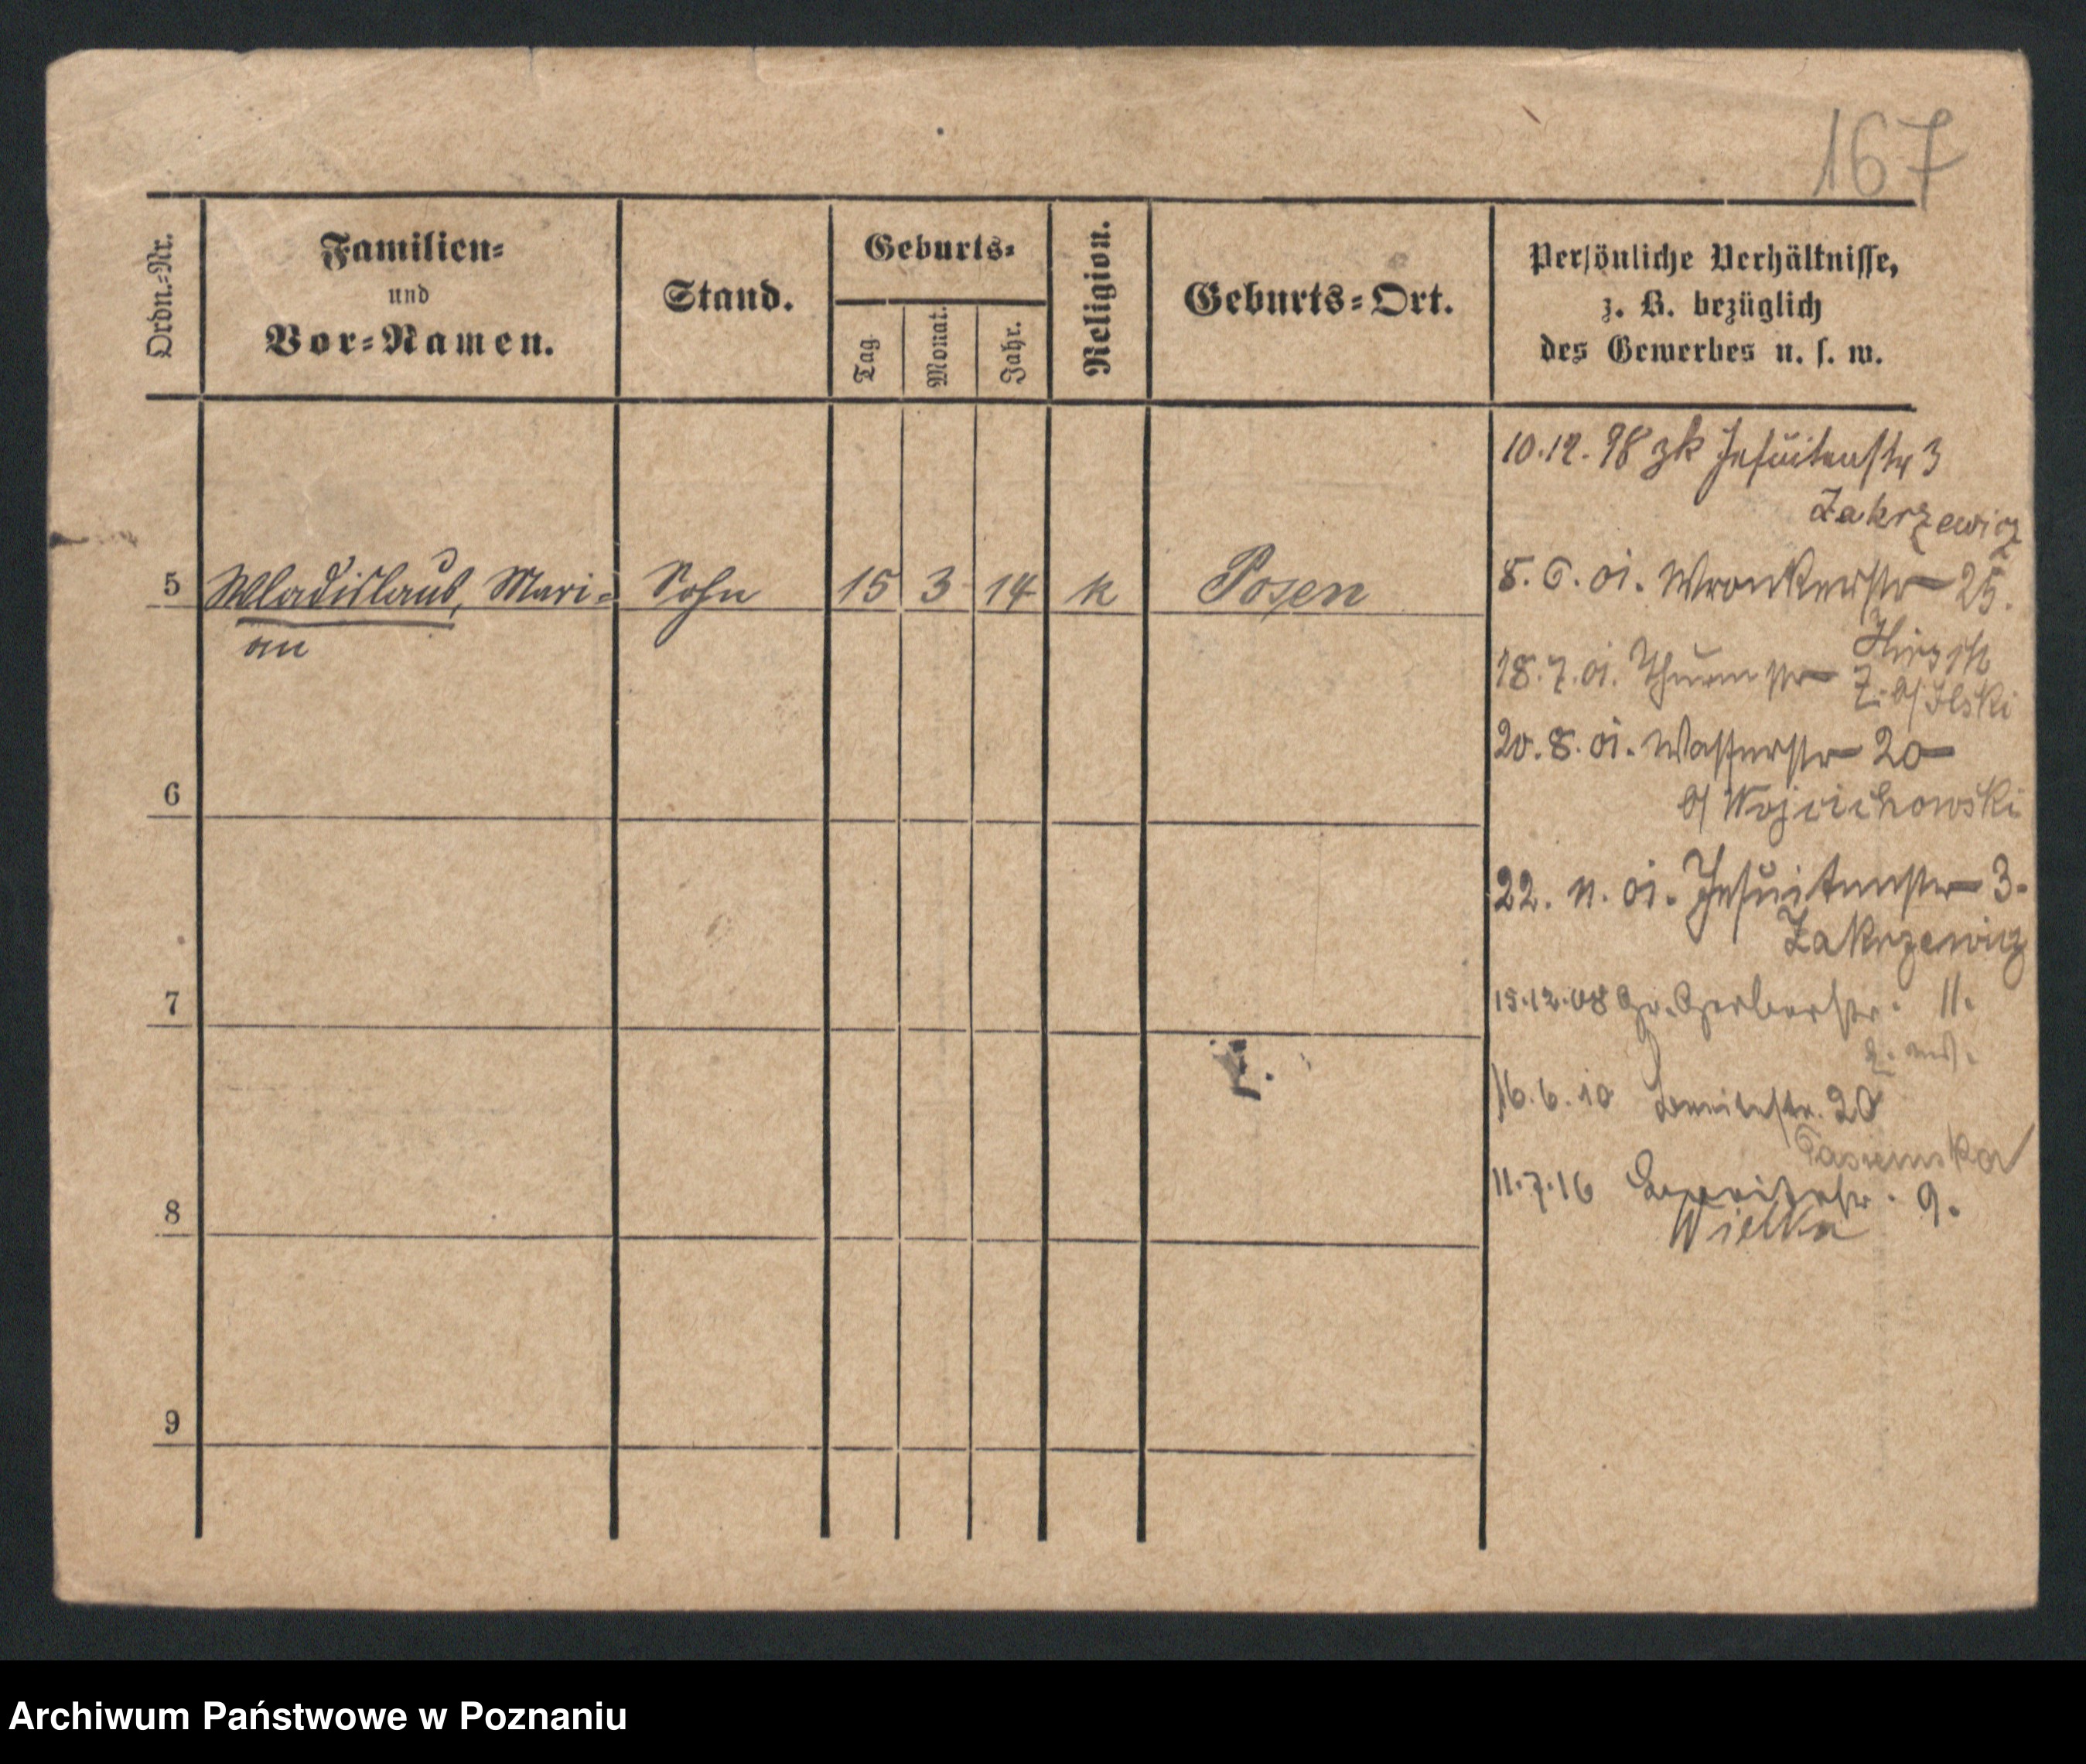 167
Ordn.-Nr.
Familien-
und
Vor-Namen.
Stand.
Geburts-
Tag
Monat.
Jahr.
Religion.
Geburts-Ort.
Persönliche Verhältnisse,
z. B. bezüglich
des Gewerbes u. s. w.
10.12.98 zk Jesuitenstr 3
Zakrzewicz
5 Wladislaus, Mari- Sohn 15 3 14 k Posen
an
8.6.01. Wronkerstr 25.
18.7.01. Thurmstr 7.
20.8.01. Wasserstr 20
b/ Wojcichowski
6
22. 11. 01. Jesuitenstr 3.
Zakrzewicz
7
15.12.08 Gr. Gerberstr. 11.
16.6.10 Breitestr. 20
11.7.16 9.
Wielka
8
9
Archiwum Państwowe w Poznaniu